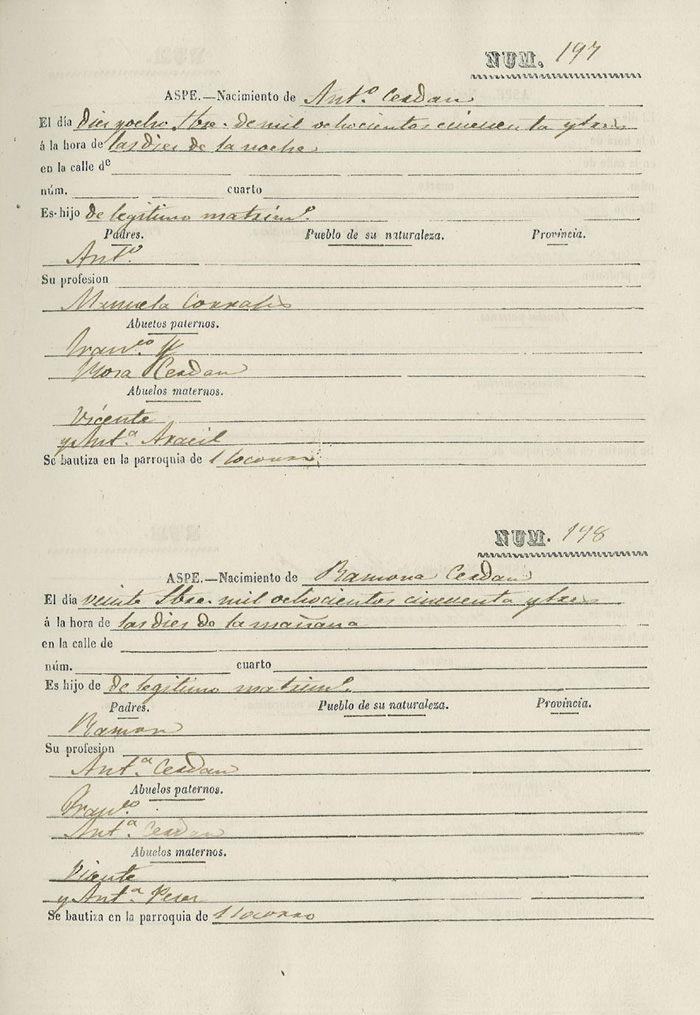 NUM. 197
ASPE.—Nacimiento de Ant.º Cerdan
El día diez y ocho Sbre. de mil ochocientos cincuenta y tres
á la hora de las dies de la noche
en la calle de
núm. cuarto
Es hijo de legitimo matrim.º
Padres. Pueblo de su naturaleza. Provincia.
Ant.º
Su profesion
Manuela Corrales
Abuelos paternos.
Fran.co
Rosa Cerdan
Abuelos maternos.
Vicente
y Ant.ª Aracil
Se bautiza en la parroquia de
NUM. 198
ASPE.—Nacimiento de Ramona Cerdan
El día veinte Sbre. mil ochocientos cincuenta y tres
á la hora de las dies de la mañana
en la calle de
núm. cuarto
Es hijo de de legitimo matrim.º
Padres. Pueblo de su naturaleza. Provincia.
Ramon
Su profesion
Ant.ª Cerdan
Abuelos paternos.
Fran.co
Ant.ª Cerdan
Abuelos maternos.
Vicente
y Ant.ª
Se bautiza en la parroquia de